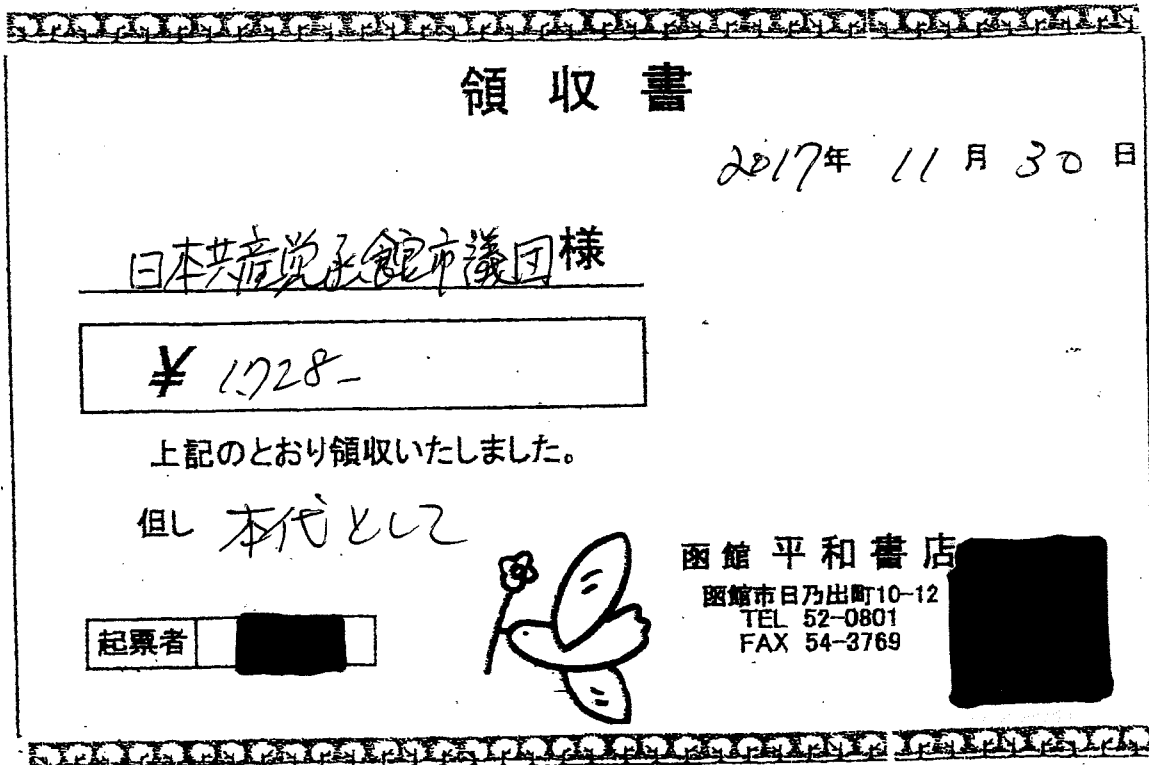 領収書
2017年 11月 30日
日本共産党函館市議団様
¥ 1,728-
上記のとおり領収いたしました。
但し 本代として
函館 平和書店
函館市日乃出町10-12
TEL 52-0801
FAX 54-3769
起票者